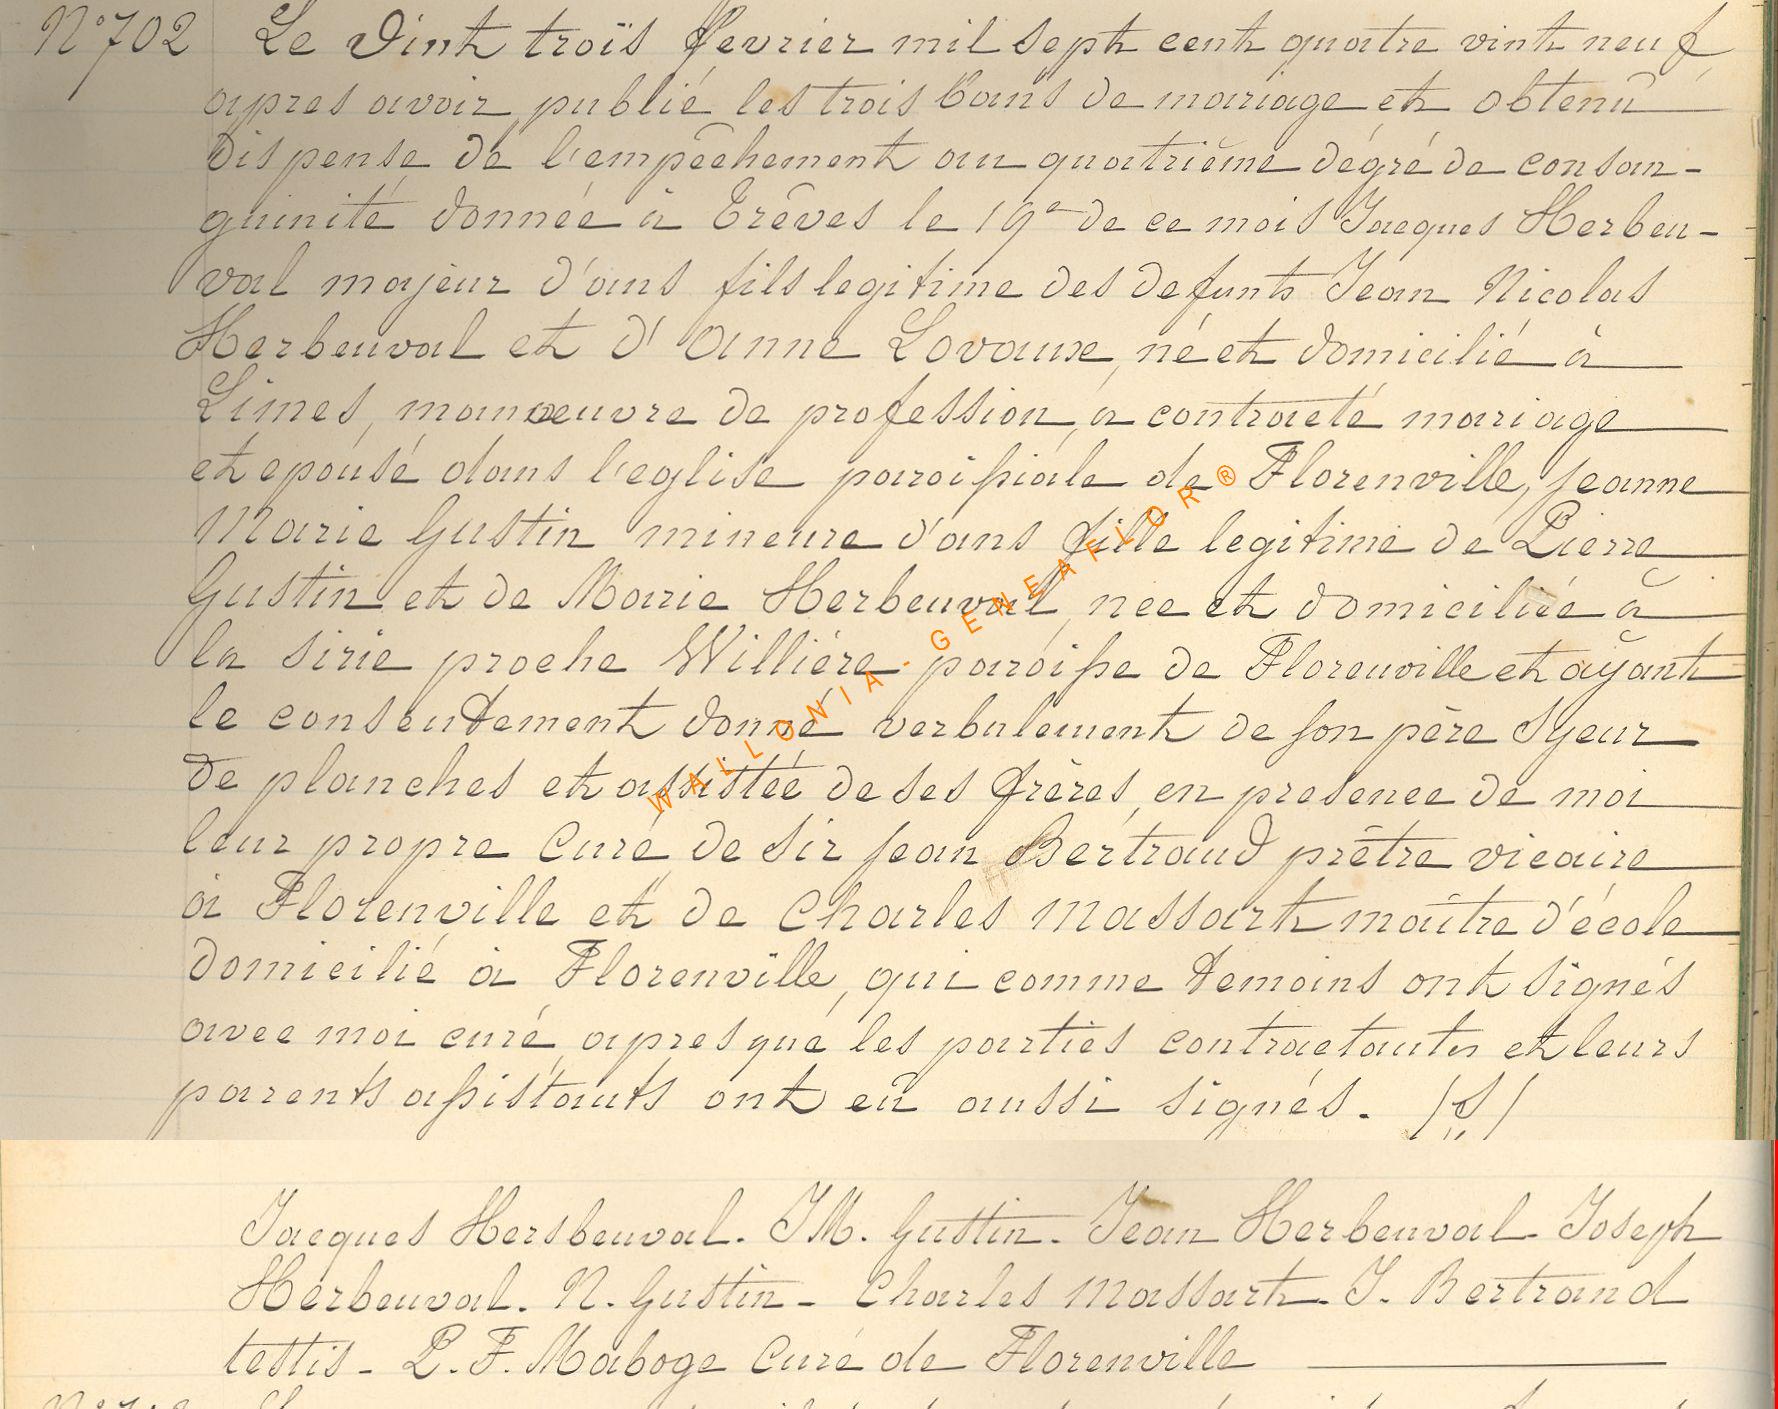 N° 702 Le vint troïs fevrier mil sept cent quatre vint neuf
apres avoir publié les trois bans de mariage et obtenû
dispense de l'empêchement au quatriême dégré de consan-
guinité donnée à Trêves le 19e de ce mois Jacques Herbeu-
val majeur d'ans fils legitime des defunts Jean Nicolas
Herbeuval et d'Anne Lovaux, né et domicilié à
Limes, manoeuvre de profession, a contracté mariage
et epousé dans l'eglise paroißiale de Florenville, Jeanne
Marie Gustin mineure d'ans fille legitime de Pierre
Gustin et de Marie Herbeuval, neé et domiciliée à
la sirie proche Williére paroiße de Florenville et aÿant
le consentement donné verbalement de son père Syeur
de planches et assistée de ses frères, en presence de moi
leur propre Curé, de Sir Jean Bertrand prêtre vicaire
à Florenville et de Charles Massart maître d'école
domicilié à Florenville, qui comme temoins ont signés
avec moi curé, apres que les parties contractantes et leurs
parents aßistants ont eû aussi signés. /S/
Jacques Hersbeuval. JM. Gustin. Jean Herbeuval. Joseph
Herbeuval. N. Gustin - Charles Massart. J. Bertrand
testis - P. F. Maboge Curé de Florenville
WALLONIA . GENEAFLOR ®